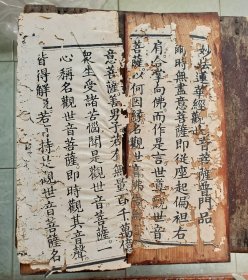 妙法蓮華經觀世音菩薩普門品
爾時無盡意菩薩即從座起偏袒右
肩合掌向佛而作是言世尊觀世音
菩薩以何因緣名觀世音
音菩薩善男子若 無量百千萬億
衆生受諸苦惱聞是觀世音菩薩
心稱名觀世音菩薩即時觀其音聲
皆得解脫若有持是觀世音菩薩名